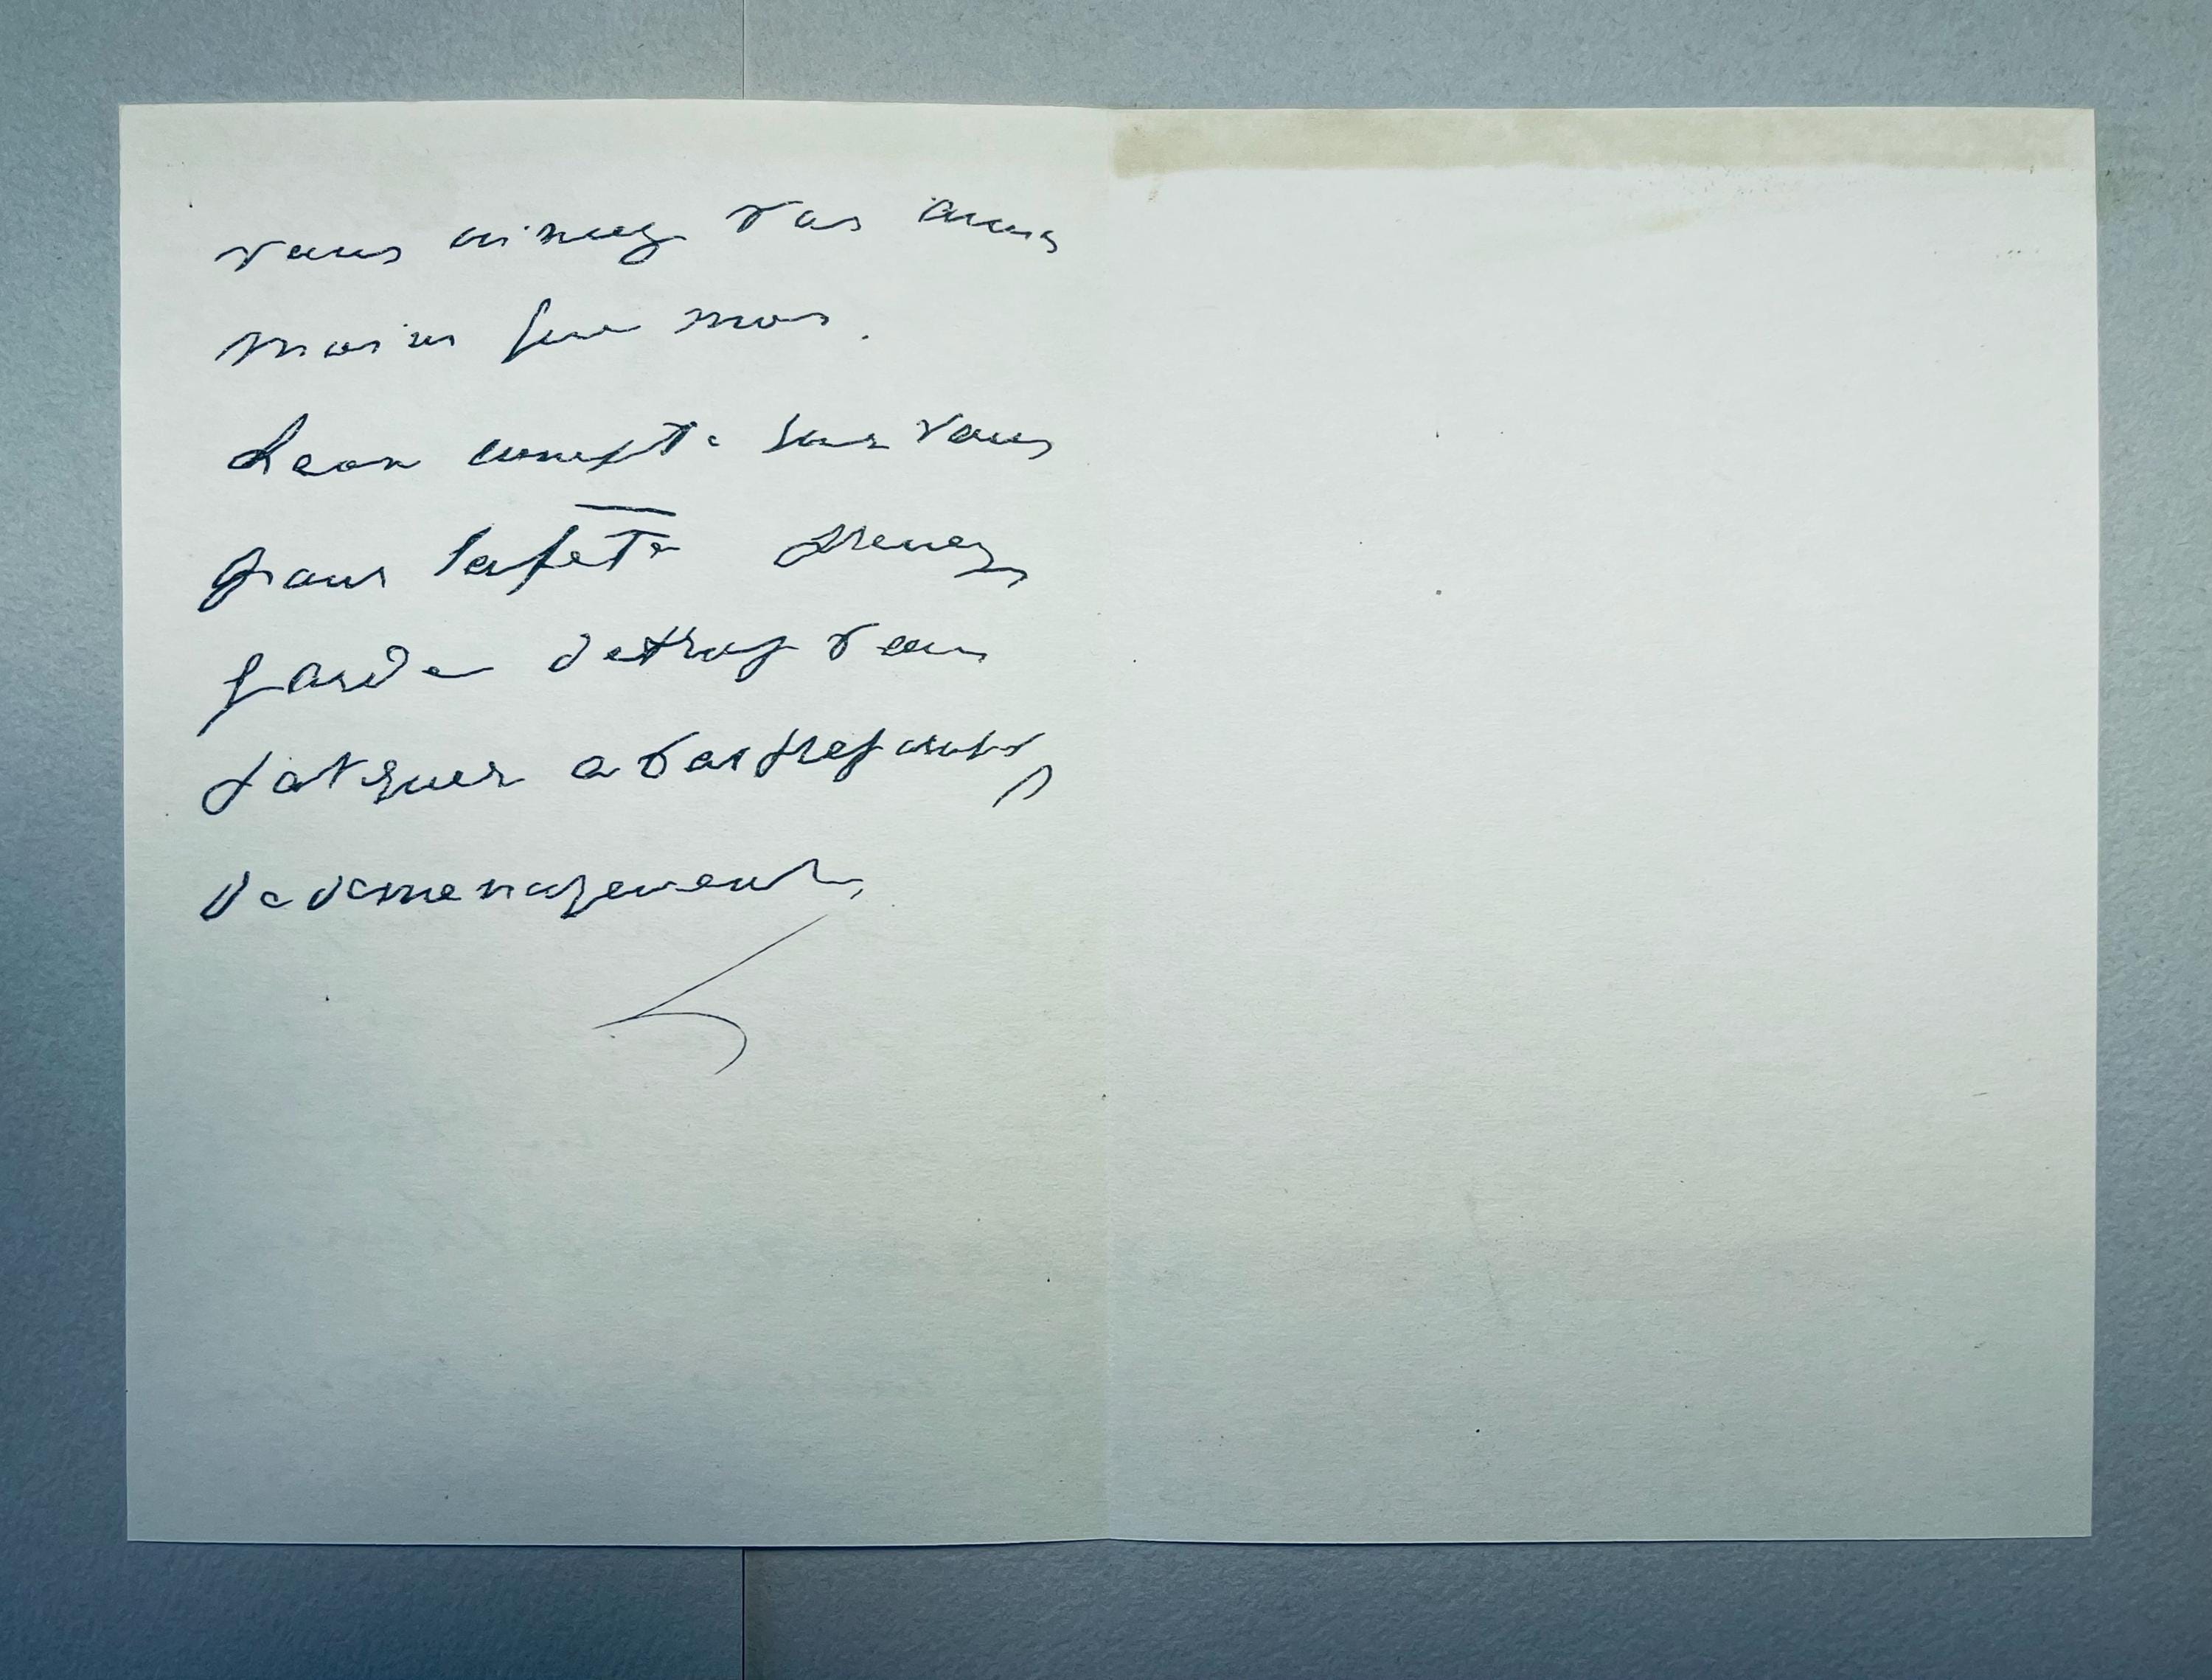 vous aimez vos amis
moins que moi.
Leon compte sur vous
pour la fête prenez
garde de trop vous
fatiguer a vos preparatifs
de demenagement